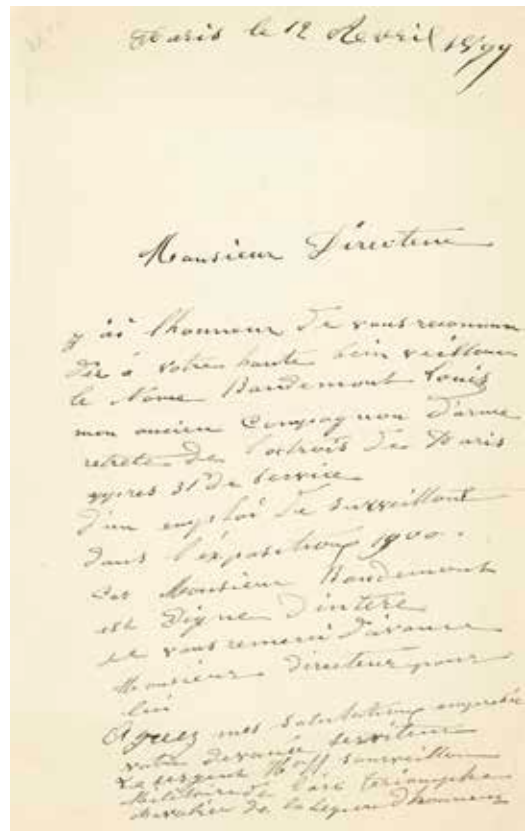 Paris le 12 Avril 1899
Monsieur Directeur
j'ai l'honneur de vous recomman
der à votre haute bien veillance
le Nomé Baudemont Louis
mon ancien Compagnon d'arme
retreté de l'octrois de Paris
apres 31 de service
d'un emploi de surveillant
dans l'exposition 1900.
Monsieur Baudemont
est Digne d'intere
vous remerci d'avance
Monsieur directeur pour
lui
Agreez mes salutations
votre devoué serviteur
Le sergent Hoff surveillant
Militaire de l'arc triomphe
chevalier de la legion d'honneur